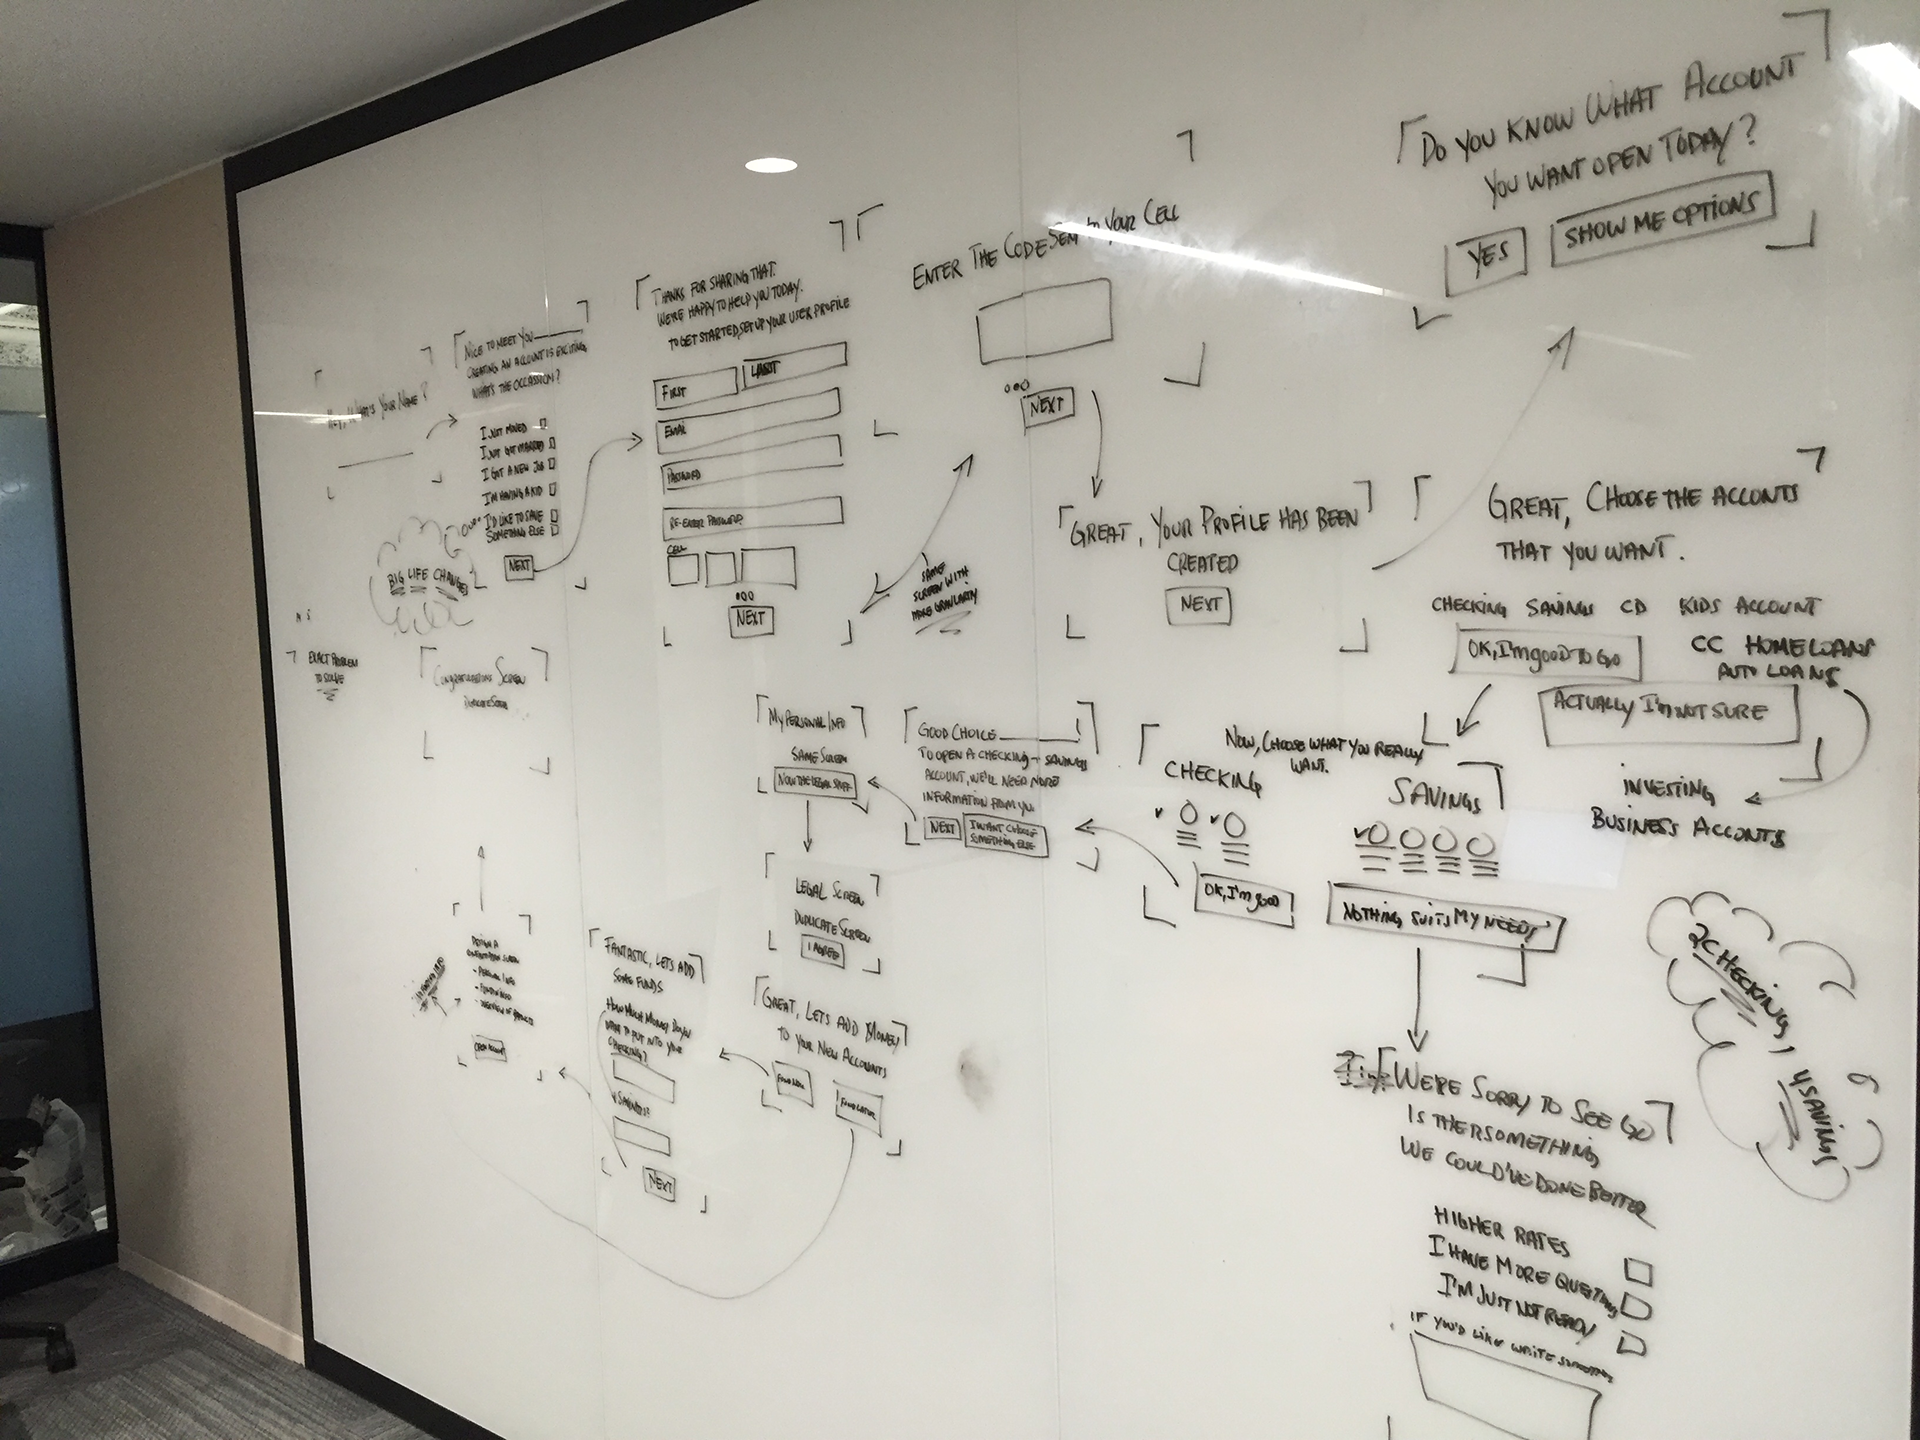 Hey, What's Your Name?
Nice to meet you
Creating an account is exciting
What's the occassion?
I just moved
I just got married
I got a new job
I'm having a kid
I'd like to save
Something else
Next
Big life change
Exact problem
to solve
Thanks for sharing that.
We're happy to help you today.
To get started, set up your user profile
First
Last
Email
Password
Re-enter password
Cell
Next
Same
screen with
more granularity
Enter the code sent to your cell
Next
Great, your profile has been
created
Next
Do you know what account
you want open today?
Yes
Show me options
Great, choose the acconts
that you want.
Checking Savings CD Kids account
CC Home loans
Auto loans
OK, I'm good to go
Actually I'm not sure
Investing
Business acconts
Now, choose what you really
want.
Checking
Savings
OK, I'm good
Nothing suits my needs
2 checking, 4 savings
Good choice
to open a checking - savings
account, we'll need more
information from you
Next
I want choose
something else
My personal info
Same screen
Now the legal stuff
Legal screen
Duplicate screen
I agree
Great, lets add money
to your new accounts
Fund now
Fund later
Fantastic, lets add
some funds
How much money do you
want to put into your
checking?
Savings?
Next
- Personal info
Open account
Congratulations screen
Duplicate screen
We're sorry to see go
Is ther something
we could've done better
Higher rates
I have more questions
I'm just not ready
If you'd like write something